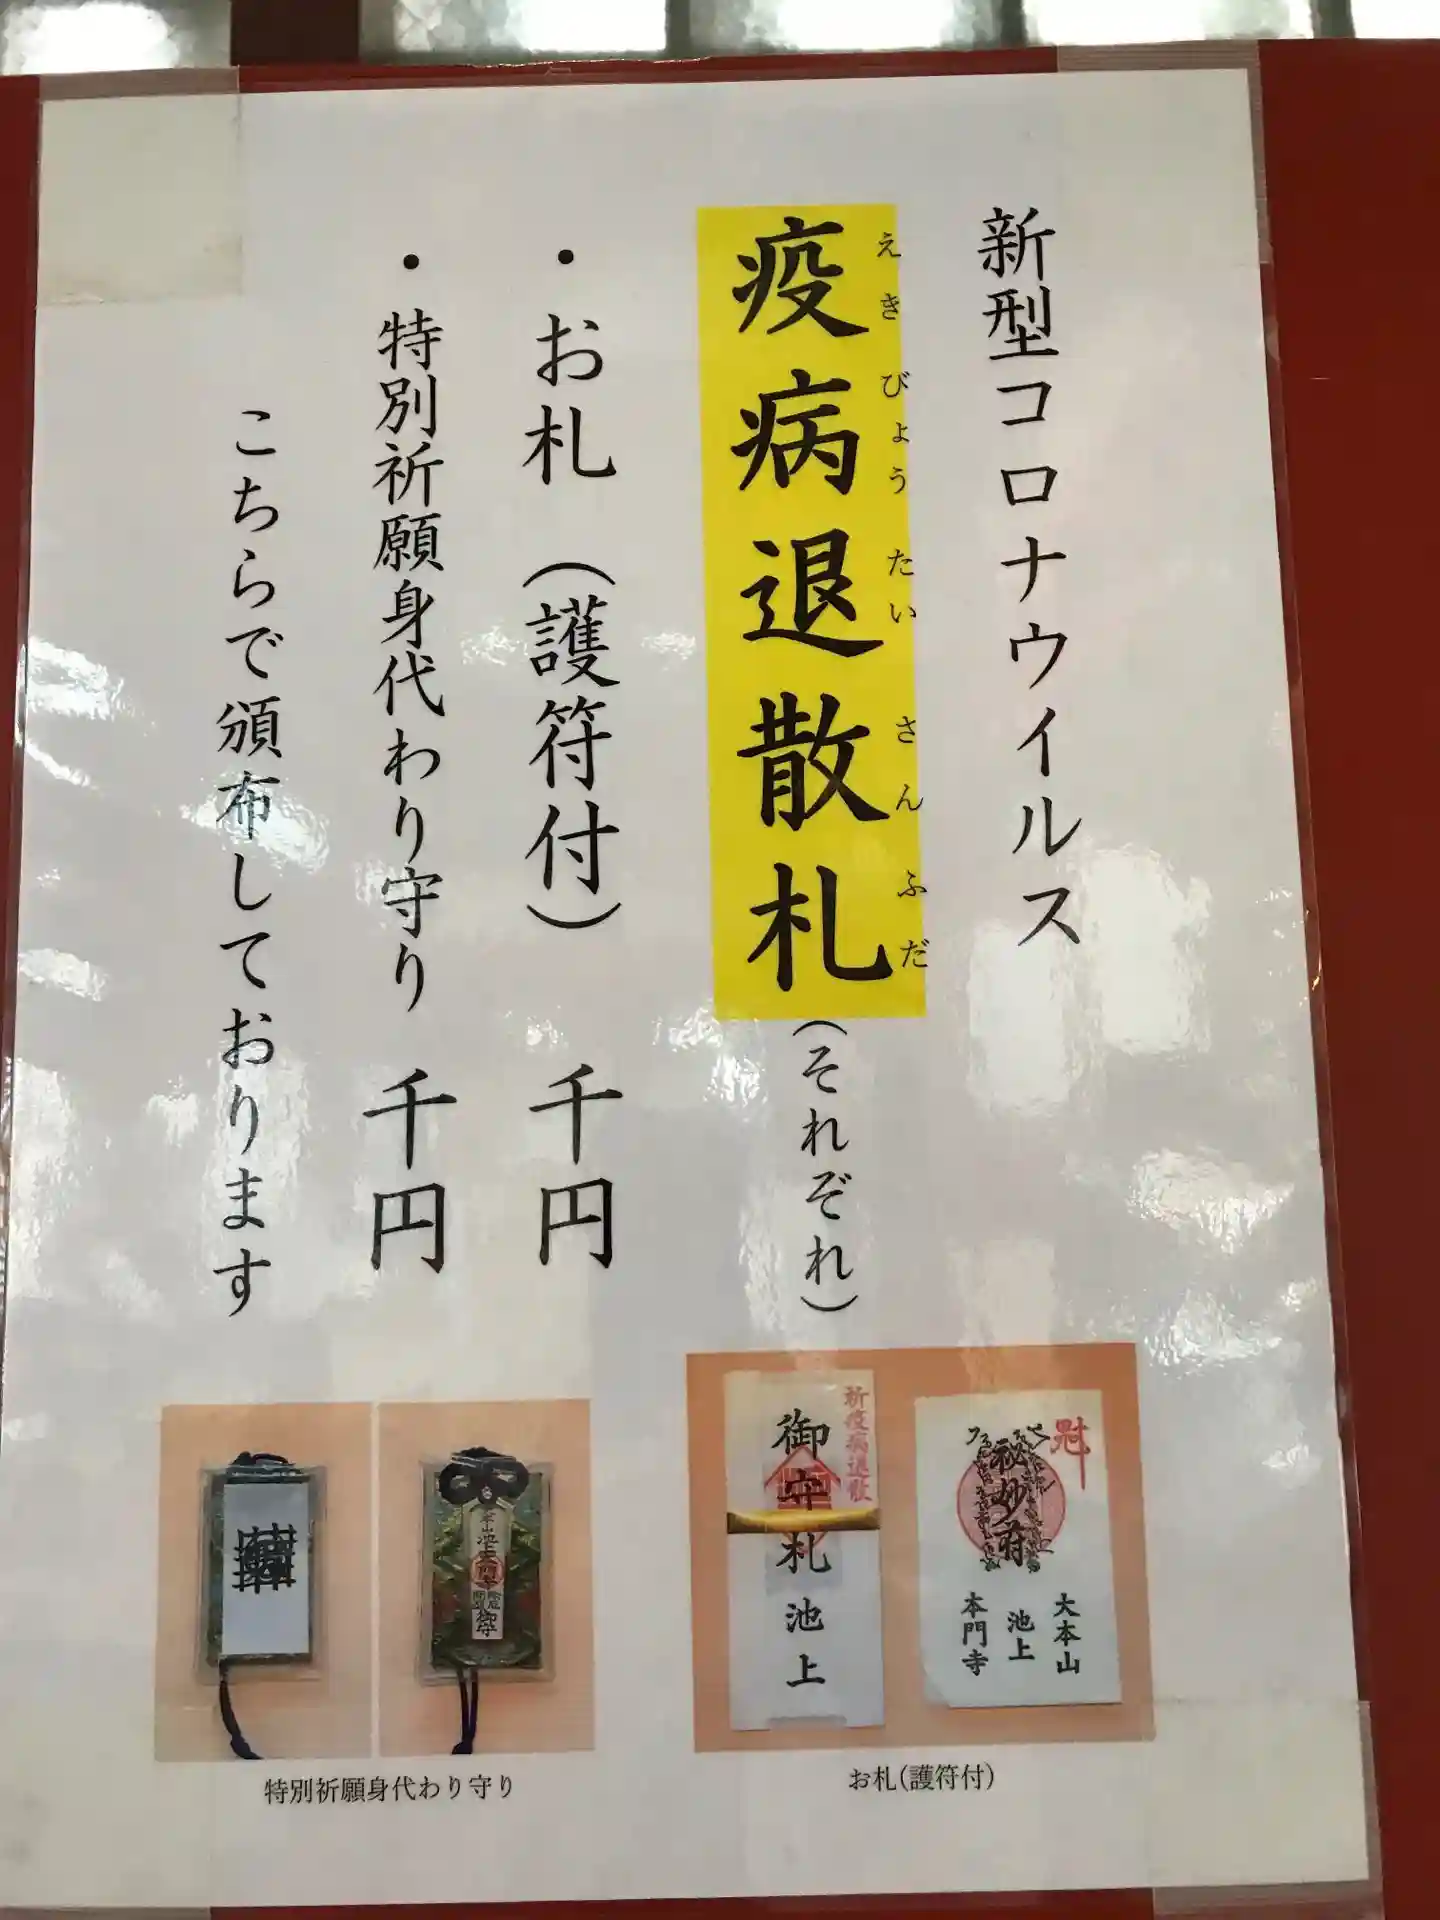 新型コロナウイルス
疫病退散札(それぞれ)
えきびょうたいさんふだ
・お札(護符付) 千円
・特別祈願身代わり守り 千円
こちらで頒布しております
祈疫病退散
御守札
池上
秘妙符
大本山
池上
本門寺
お札(護符付)
特別祈願身代わり守り